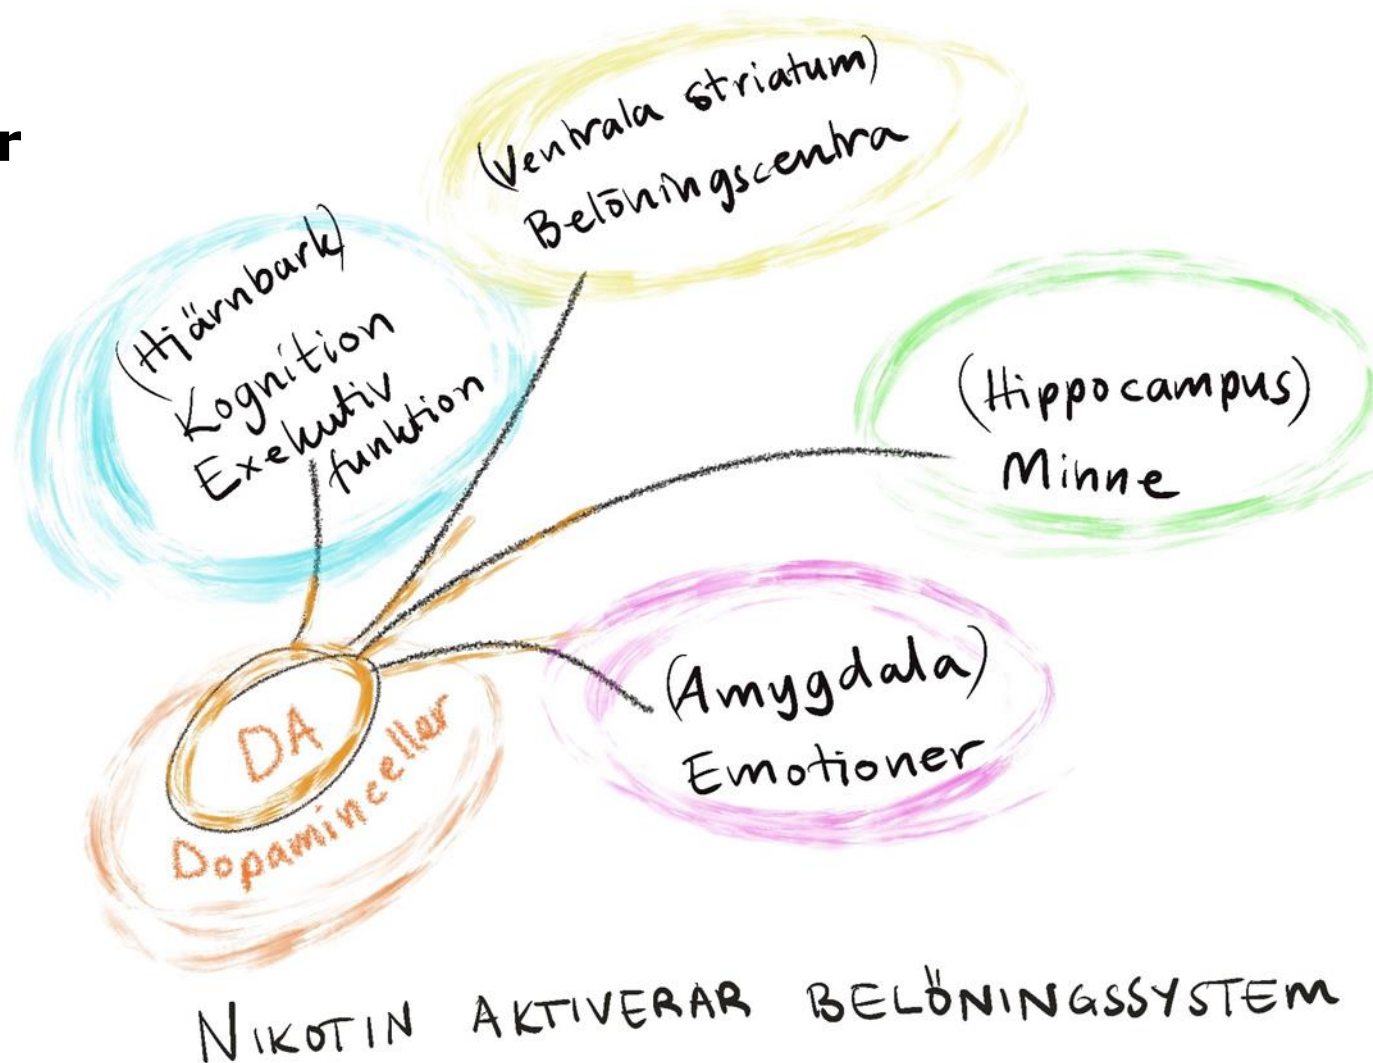 r
(Ventrala striatum)
Belöningscentra
(Hjärnbark)
Kognition
Exekutiv
funktion
(Hippocampus)
Minne
(Amygdala)
Emotioner
DA
Dopaminceller
NIKOTIN AKTIVERAR BELÖNINGSSYSTEM